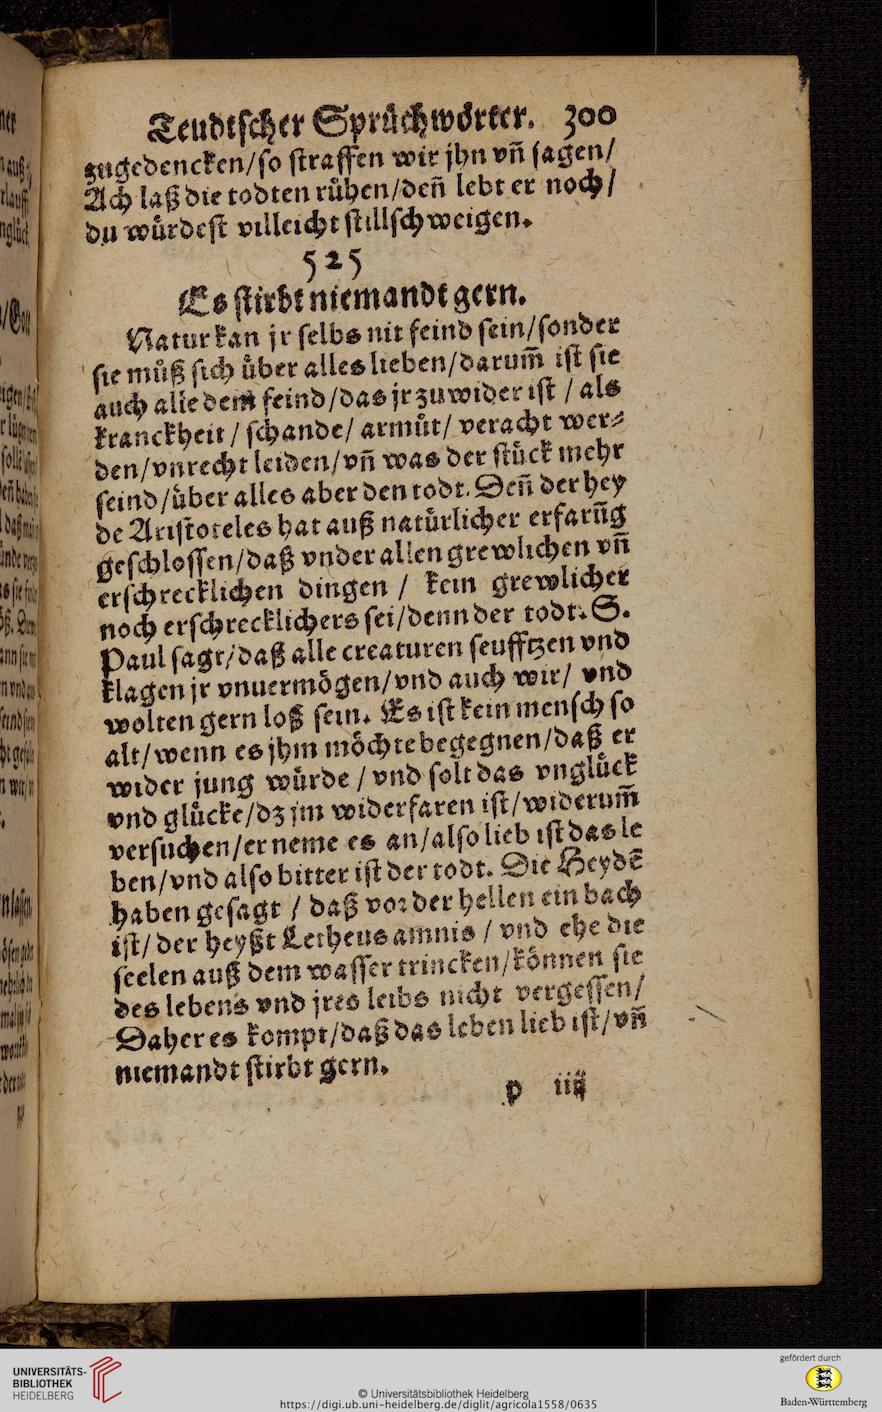 Teudtſcher Sprüchwörter. 300
zugedencken/ſo ſtraffen wir jhn vñ ſagen/
Ach laß die todten růhen/deñ lebt er noch/
du würdeſt villeicht ſtillſchweigen.
525
Es ſtirbt niemandt gern.
Natur kan jr ſelbs nit feind ſein/ſonder
ſie můß ſich über alles lieben/darum̃ iſt ſie
auch alle dem feind/das jr zuwider iſt / als
kranckheit / ſchande/ armůt/ veracht wer⸗
den/vnrecht leiden/vñ was der ſtück mehr
ſeind/über alles aber den todt. Deñ der hey
de Ariſtoteles hat auß natürlicher erfarũg
geſchloſſen/daß vnder allen grewlichen vñ
erſchrecklichen dingen / kein grewlicher
noch erſchrecklichers ſei/denn der todt. S.
Paul ſagt/daß alle creaturen ſeufftzen vnd
klagen jr vnuermögen/vnd auch wir/ vnd
wolten gern loß ſein. Es iſt kein menſch ſo
alt/wenn es jhm möchte begegnen/daß er
wider jung würde / vnd ſolt das vnglück
vnd glücke/dz jm widerfaren iſt/widerum̃
verſuchen/er neme es an/alſo lieb iſt das le
ben/vnd alſo bitter iſt der todt. Die Heydẽ
haben geſagt / daß vor der hellen ein bach
iſt/ der heyßt Letheus amnis / vnd ehe die
ſeelen auß dem waſſer trincken/können ſie
des lebens vnd jres leibs nicht vergeſſen/
Daher es kompt/daß das leben lieb iſt/vñ
niemandt ſtirbt gern.
p iiij
UNIVERSITÄTS-
BIBLIOTHEK
HEIDELBERG
© Universitätsbibliothek Heidelberg
https://digi.ub.uni-heidelberg.de/diglit/agricola1558/0635
gefördert durch
Baden-Württemberg